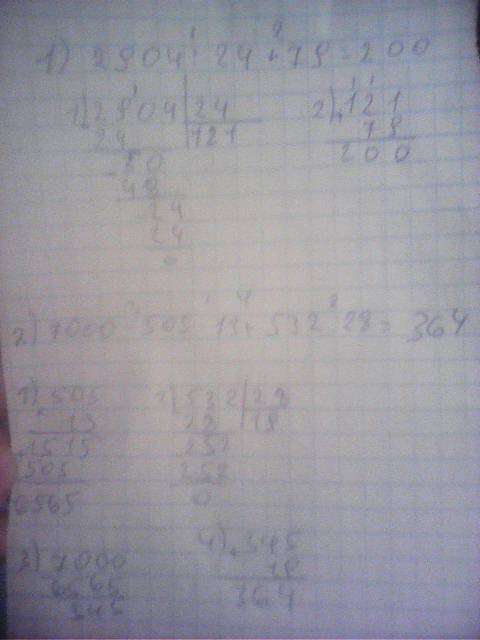 1) 2904 : 24 + 79 = 200
1) 2904 | 24
24 | 121
50
48
24
24
0
2) 121
79
200
2) 7000 - 505 · 13 + 532 : 28 = 364
1) 505
× 13
1515
505
6565
2) 532 | 28
28 | 19
252
252
0
3) 7000
6565
345
4) + 345
19
364